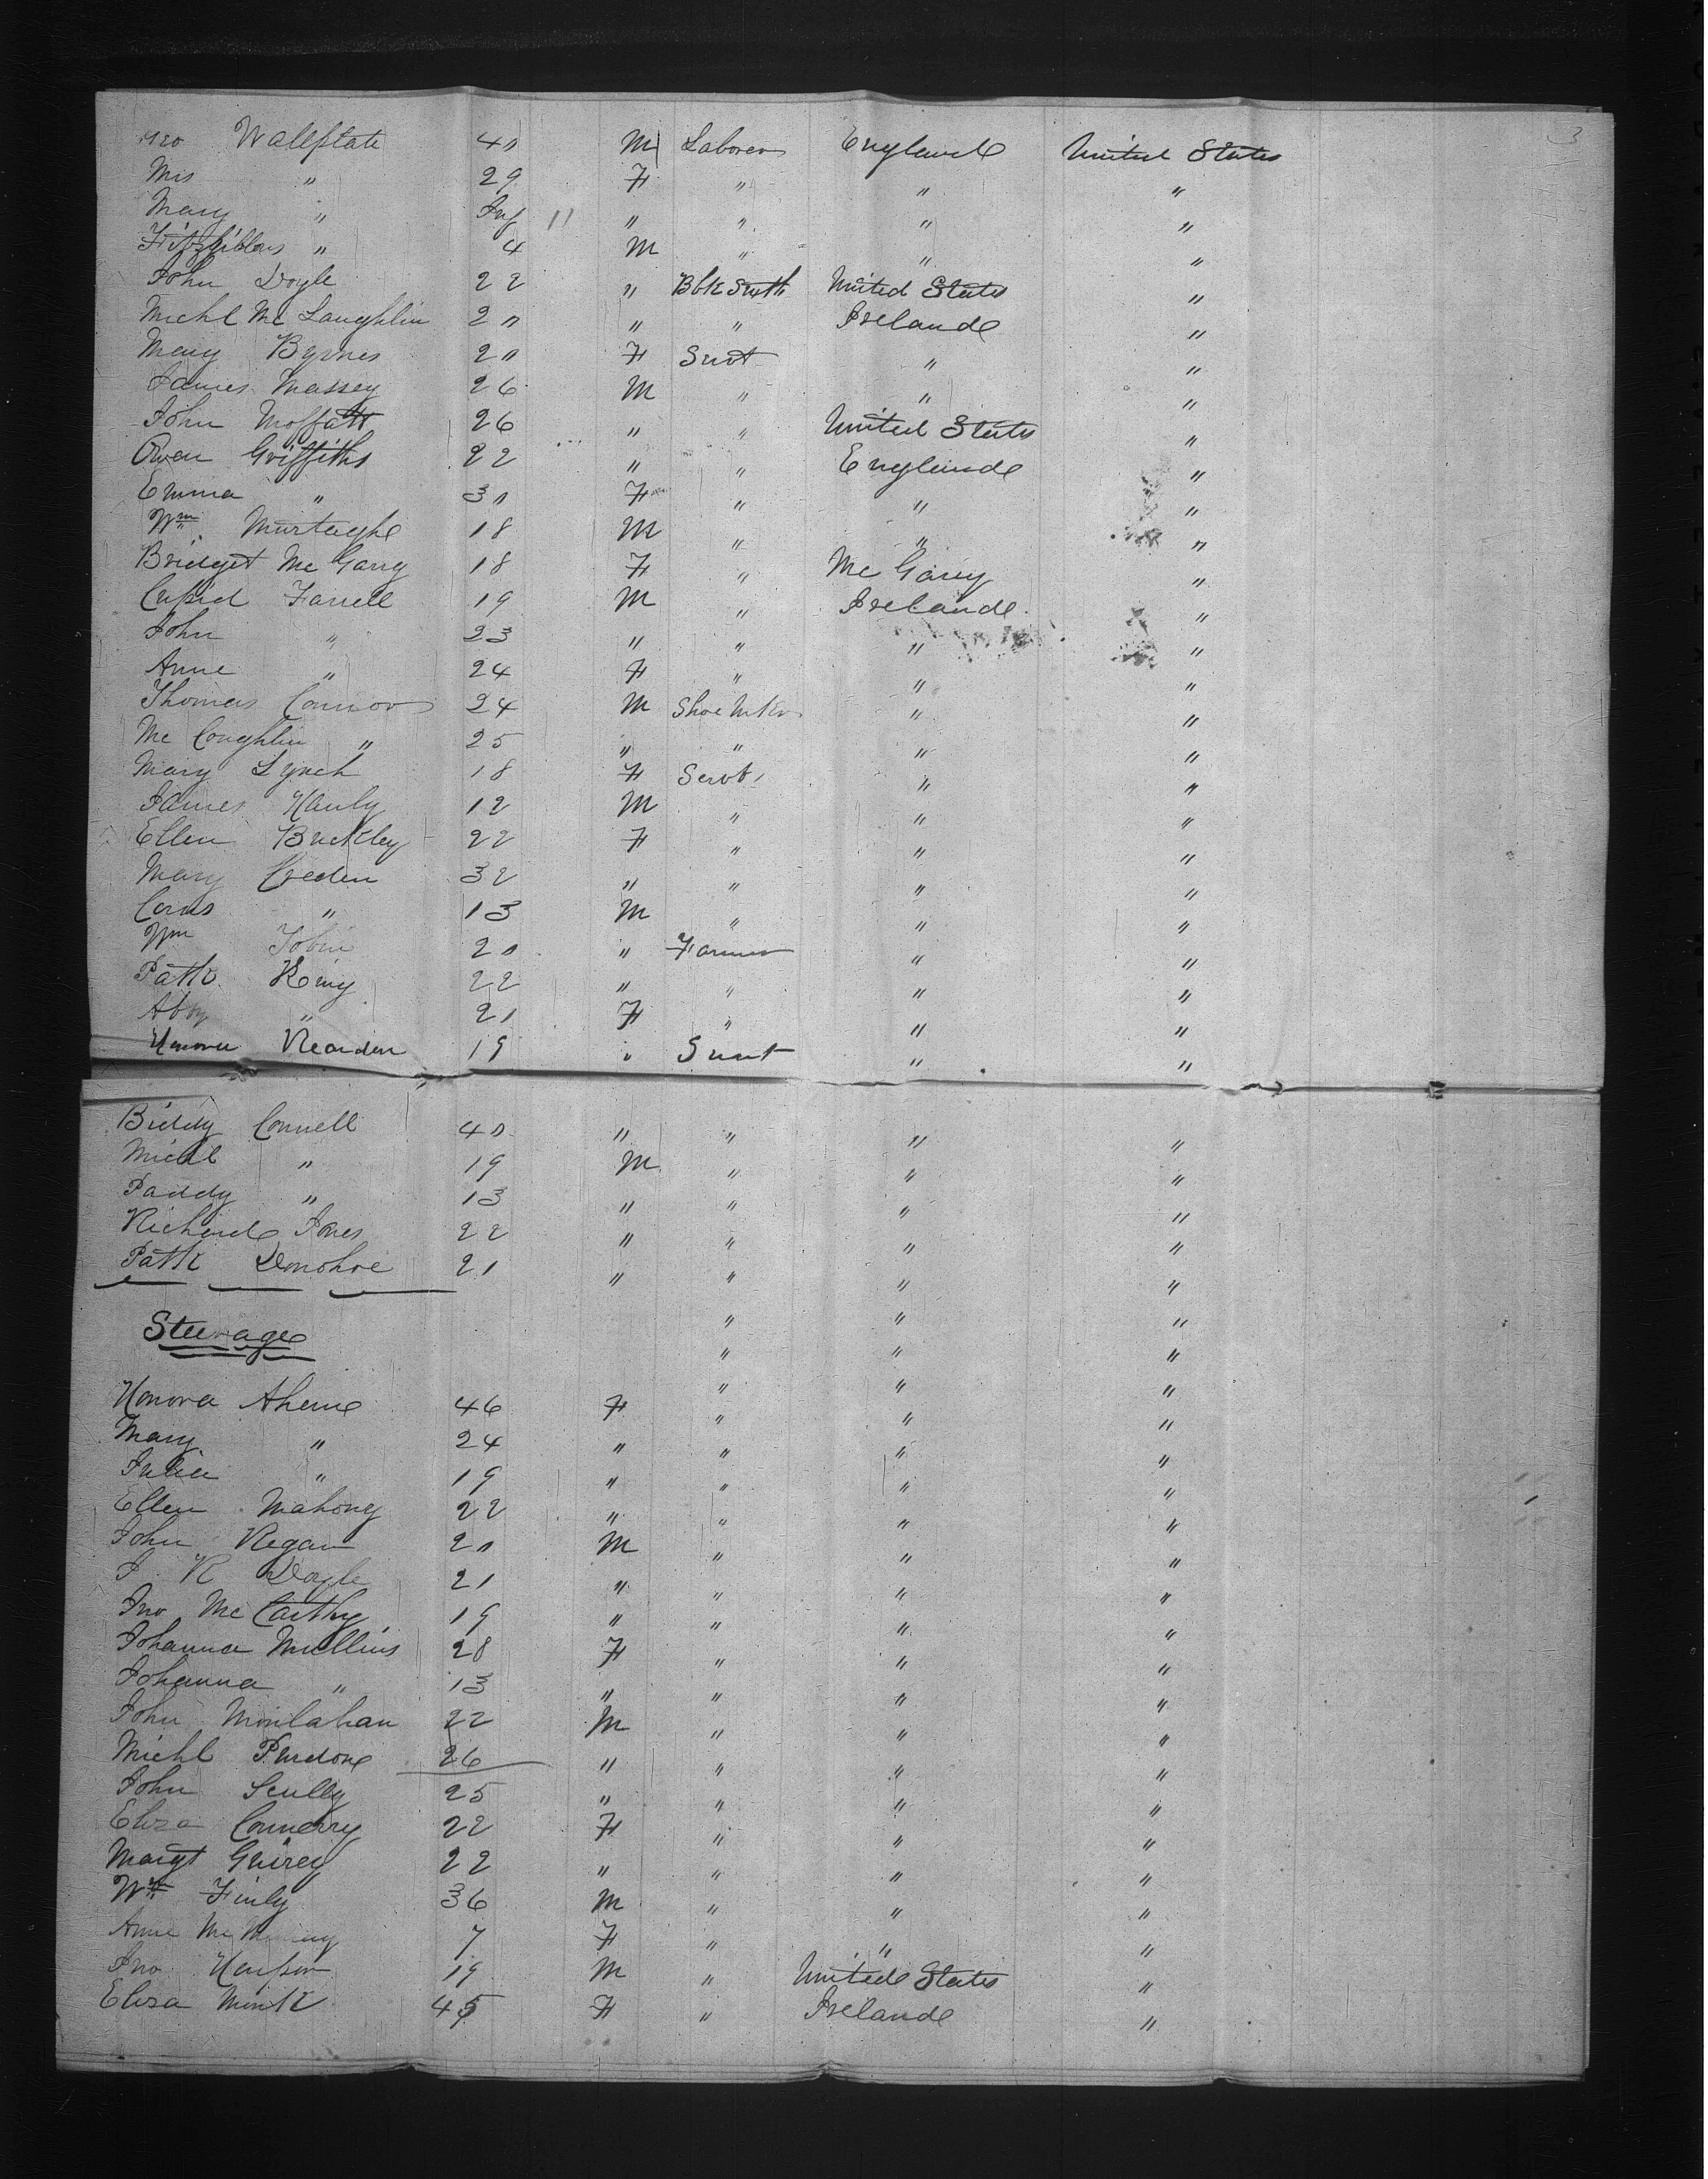 3
Wallstate 40 M Laborer England United States
Mrs " 29 F " " "
Mary " Inf 11 " " " "
Fitzgibbons " 4 M " " "
John Doyle 22 " Blk Smth United States "
Michl Mc Laughlin 20 " " Ireland "
Mary Byrnes 20 F Svnt " "
James Massey 26 M " " "
John Moffatt 26 " " United States "
Owen Griffiths 22 " " England "
Emma " 30 F " " "
Wm Murtaghe 18 M " " "
Bridget Mc Garry 18 F " Mc Garry "
Cupid Farrell 19 M " Ireland "
John " 23 " " " "
Anne " 24 F " " "
Thomas Connor 24 M Shoe Mkr " "
Mc Coughlin " 25 " " " "
Mary Lynch 18 F Servt " "
James Hanly 12 M " " "
Ellen Buckley 22 F " " "
Mary Creden 32 " " " "
Corns " 13 M " " "
Wm Tobin 20 " Farmer " "
Patk King 22 " " " "
Abby " 21 F " " "
Honora Rearden 19 " Svnt " "
Biddy Connell 40 " " " "
Michl " 19 M " " "
Paddy " 13 " " " "
Richard Jones 22 " " " "
Patk Donohoe 21 " " " "
" " "
Steerage " " "
" " "
Honora Aherne 46 F " " "
Mary " 24 " " " "
Julia " 19 " " " "
Ellen Mahony 22 " " " "
John Regan 20 M " " "
J R Doyle 21 " " " "
Jno Mc Carthy 19 " " " "
Johanna Mullins 28 F " " "
Johanna " 13 " " " "
John Monlahan 22 M " " "
Michl Purdone 26 " " " "
John Scully 25 " " " "
Eliza Connerry 22 F " " "
Margt Guirey 22 " " " "
Wm Finly 36 M " " "
Anne Mc 7 F " " "
Jno 19 M " United States "
Eliza Monk 45 F " Ireland "